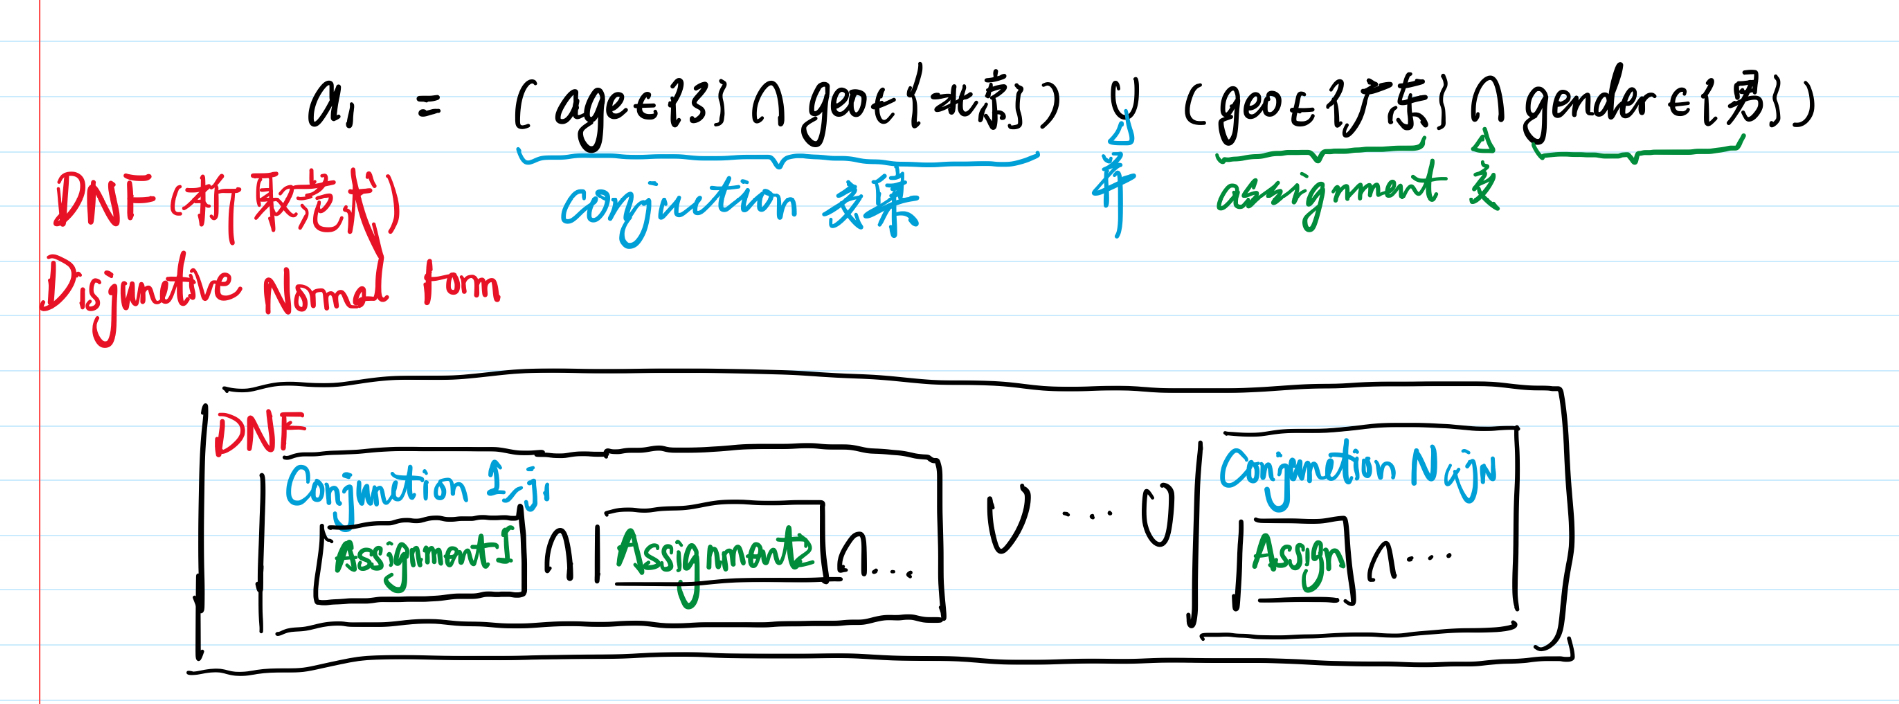 a₁ = (age∈{3} ∩ geo∈{北京}) ∪ (geo∈{广东} ∩ gender∈{男})
conjuction 交集 并 assignment 交
DNF(析取范式)
Disjunctive Normal form
DNF
Conjunction 1, j₁ Conjunction N, jN
Assignment1 ∩ Assignment2 ∩... ∪ ... ∪ Assign ∩...